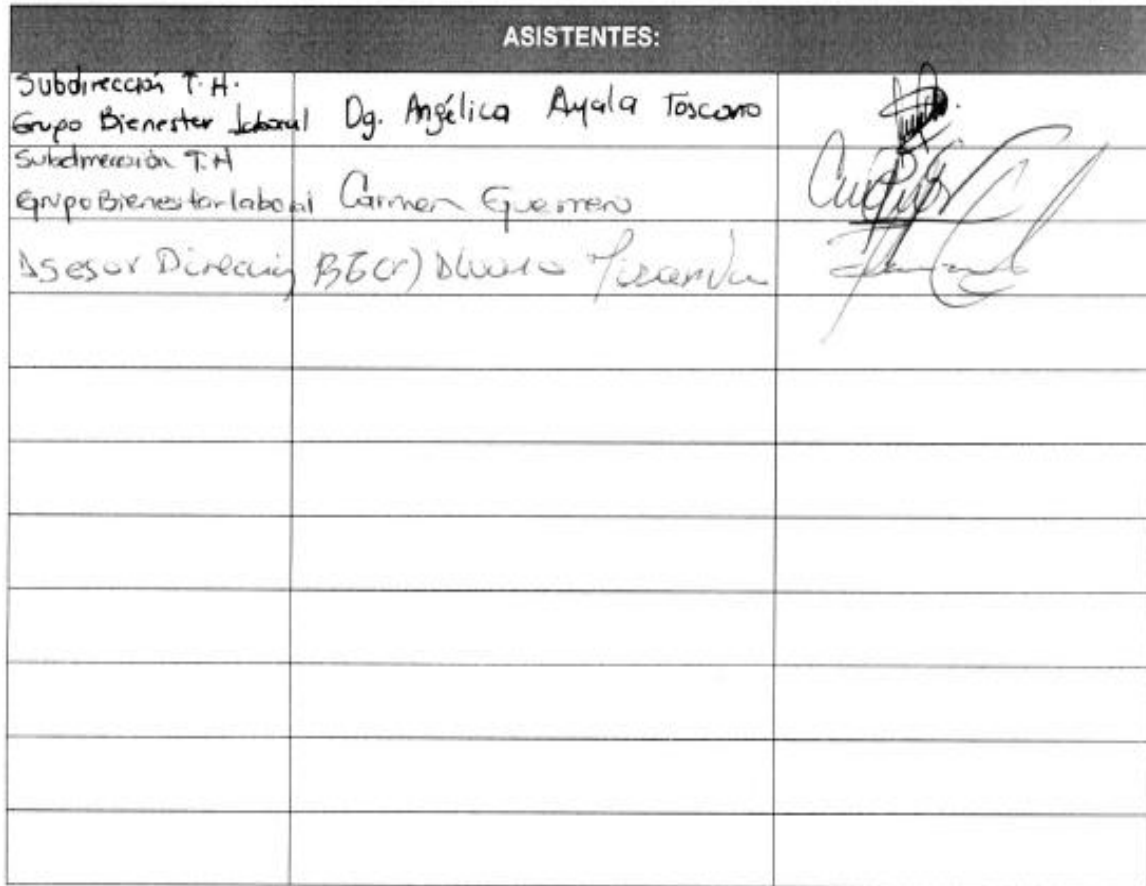 ASISTENTES:
Subdirección T.H.
Grupo Bienestar laboral Dg. Angélica Ayala Toscano
Subdirección T.H
Grupo Bienestar laboral Carmen Guerrero
Asesor Dirección